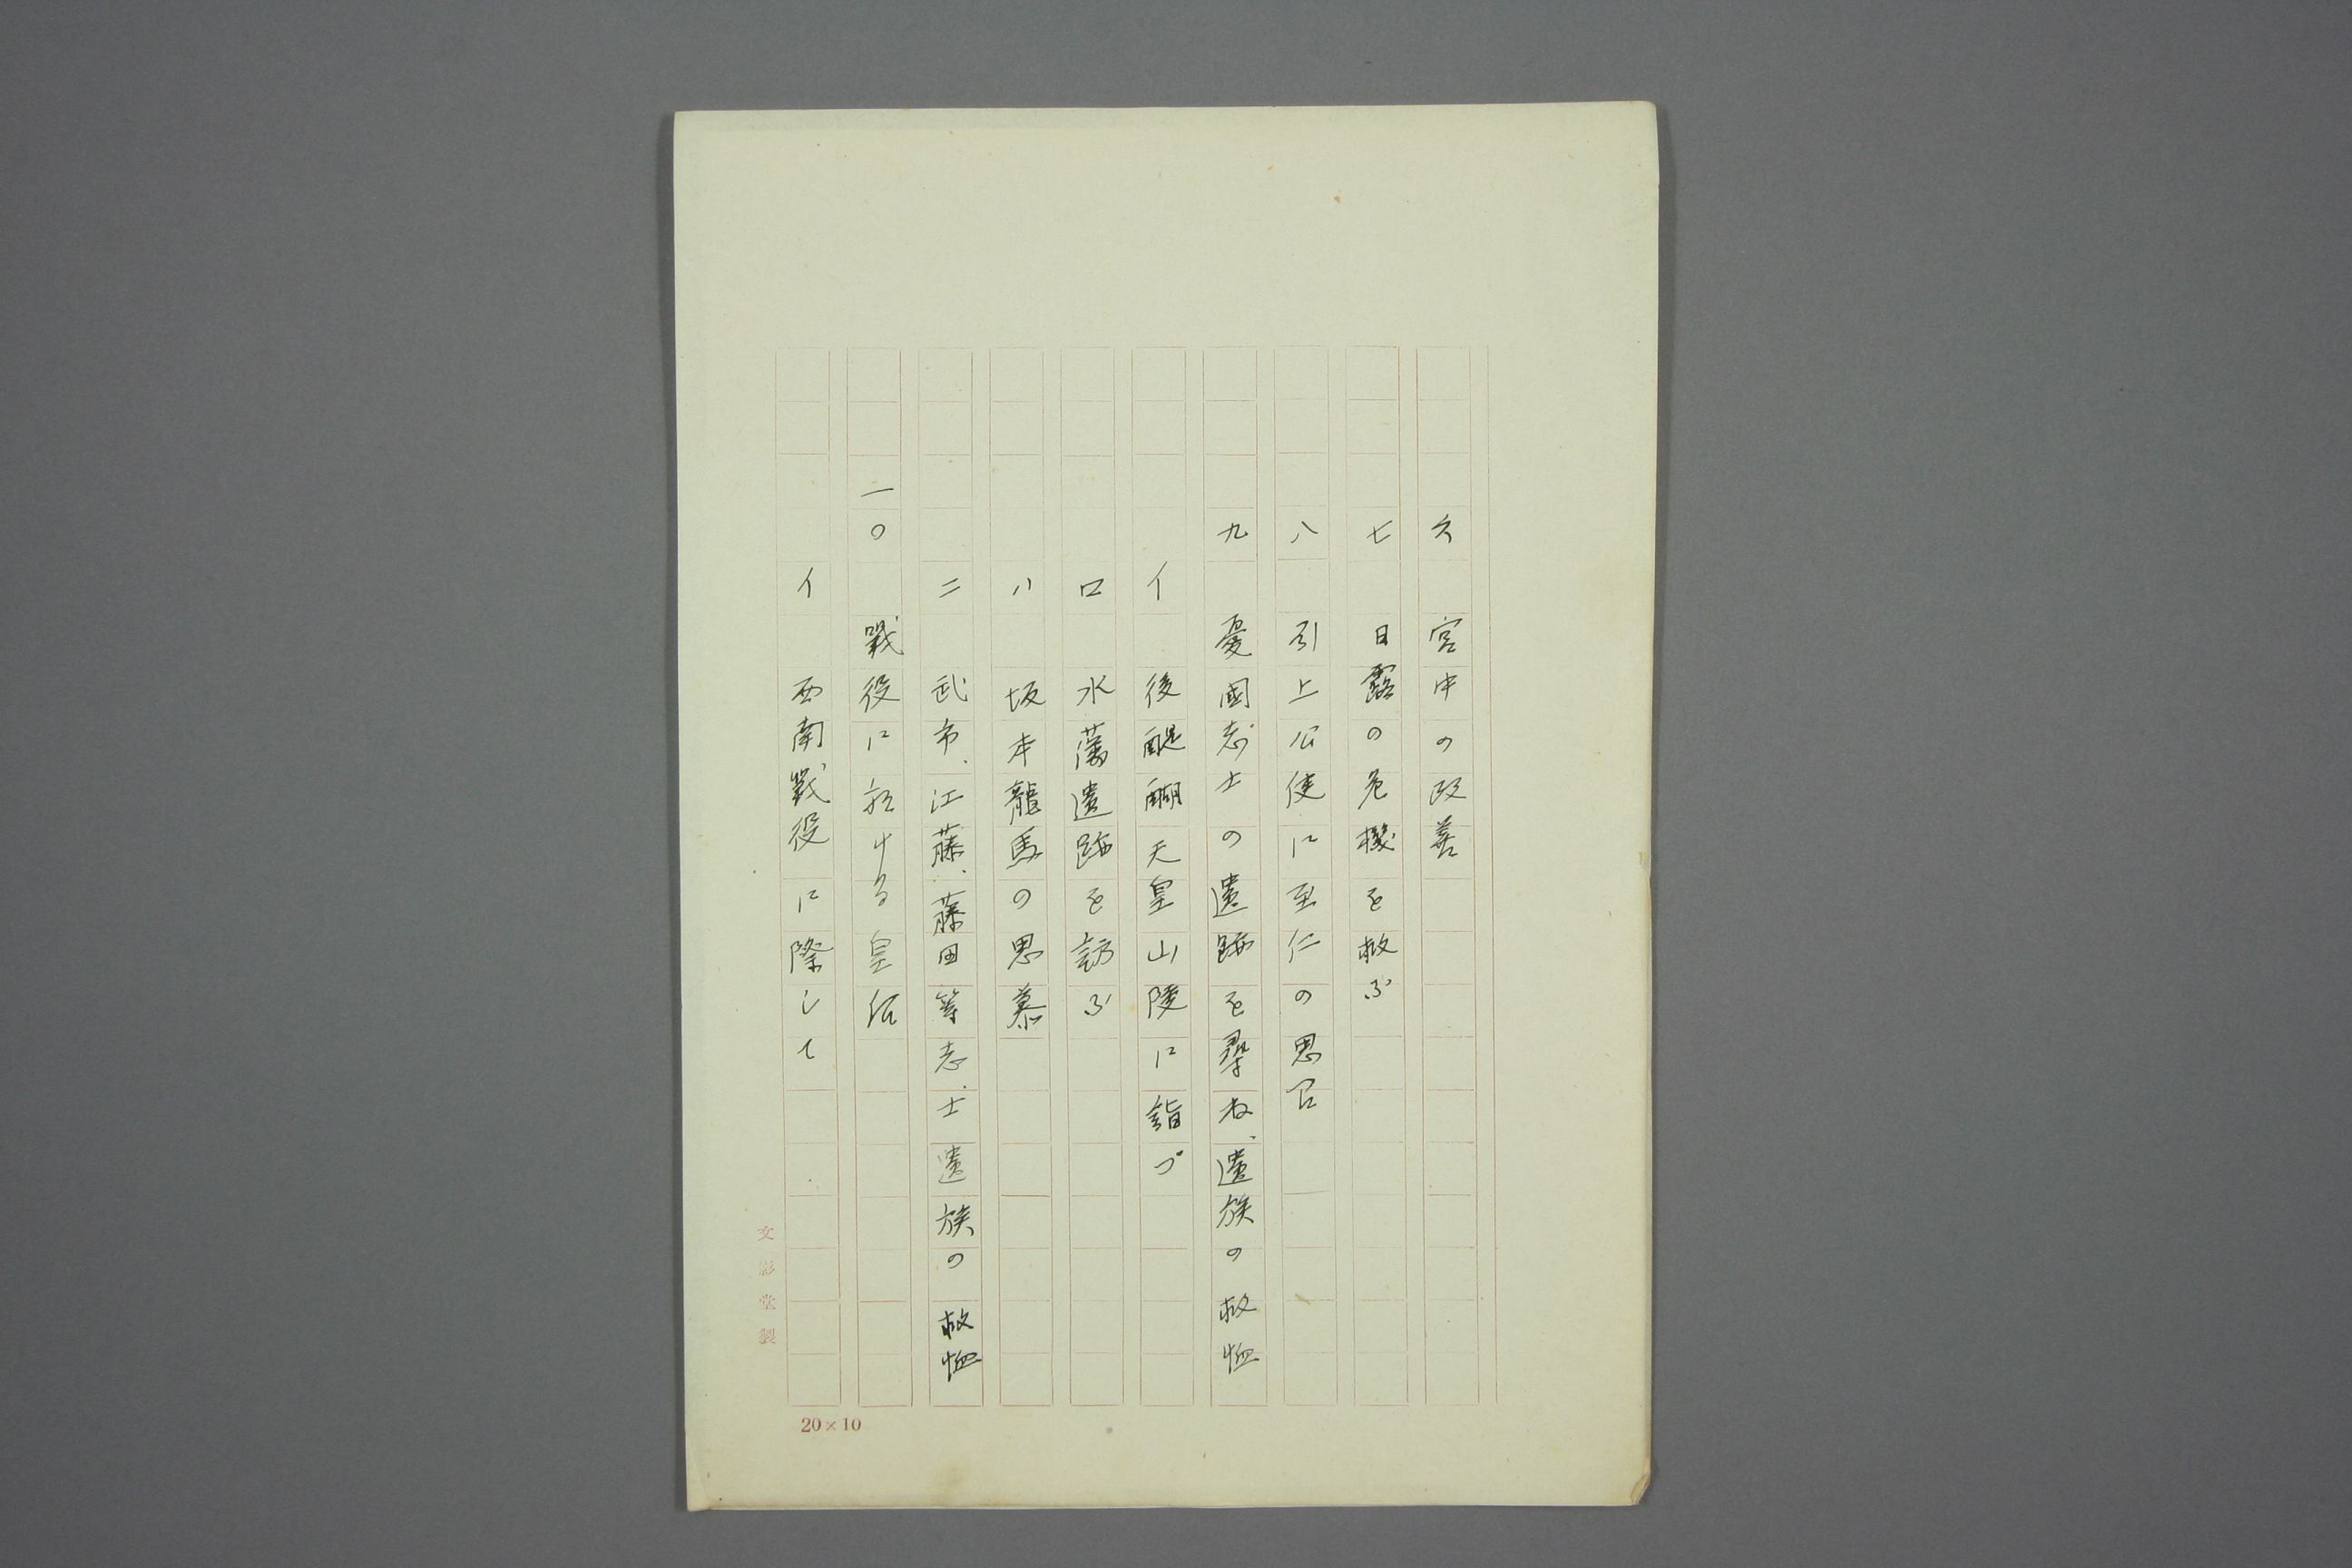 六　宮中の改善
七　日露の危機を救ふ
八　引上公使に至仁の思召
九　憂國志士の遺跡を尋ね、遺族の救恤
イ　後醍醐天皇山陵に詣づ
ロ　水藩遺跡を訪ふ
ハ　坂本龍馬の思慕
ニ　武市、江藤、藤田等志士遺族の救恤
一〇　戰役に於ける皇后
イ　西南戰役に際して
文影堂製
20×10